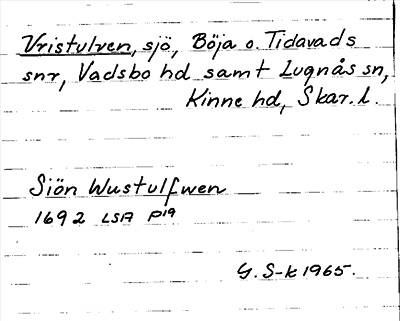 Vristulven, sjö, Böja o. Tidavads
snr, Vadsbo hd samt Lugnås sn,
Kinne hd, Skar. l.
Siön Wustulfwen
1692 LSA P19
G. S-k 1965.